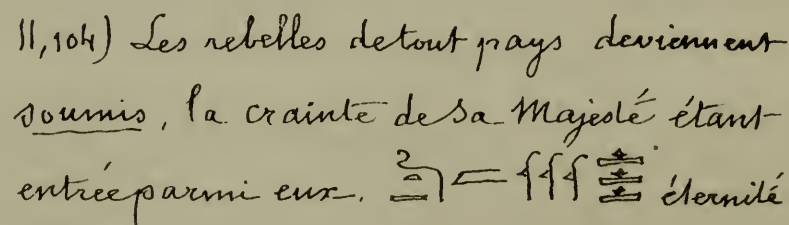 II, 104) Les rebelles de tout pays deviennent
soumis, la crainte de Sa Majesté étant
entrée parmi eux. éternité